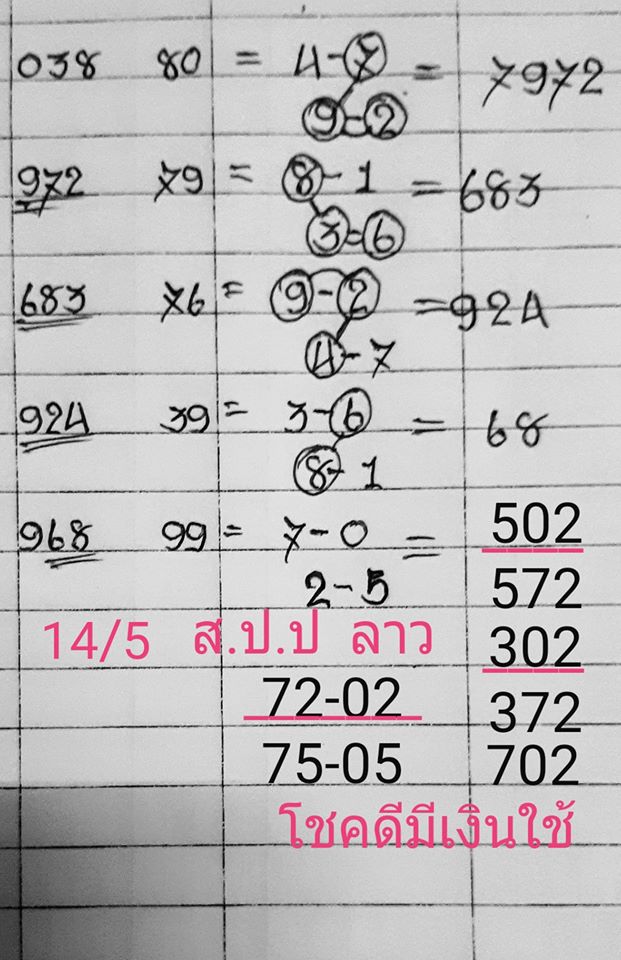 038 80 = 4-7 = 7972
9=2
972 79 = 8-1 = 683
3=6
683 76 = 9-2 = 924
4-7
924 39 = 3-6 = 68
8-1
968 99 = 7-0 = 502
2-5 572
14/5 ส.ป.ป ลาว 302
72-02 372
75-05 702
โชคดีมีเงินใช้